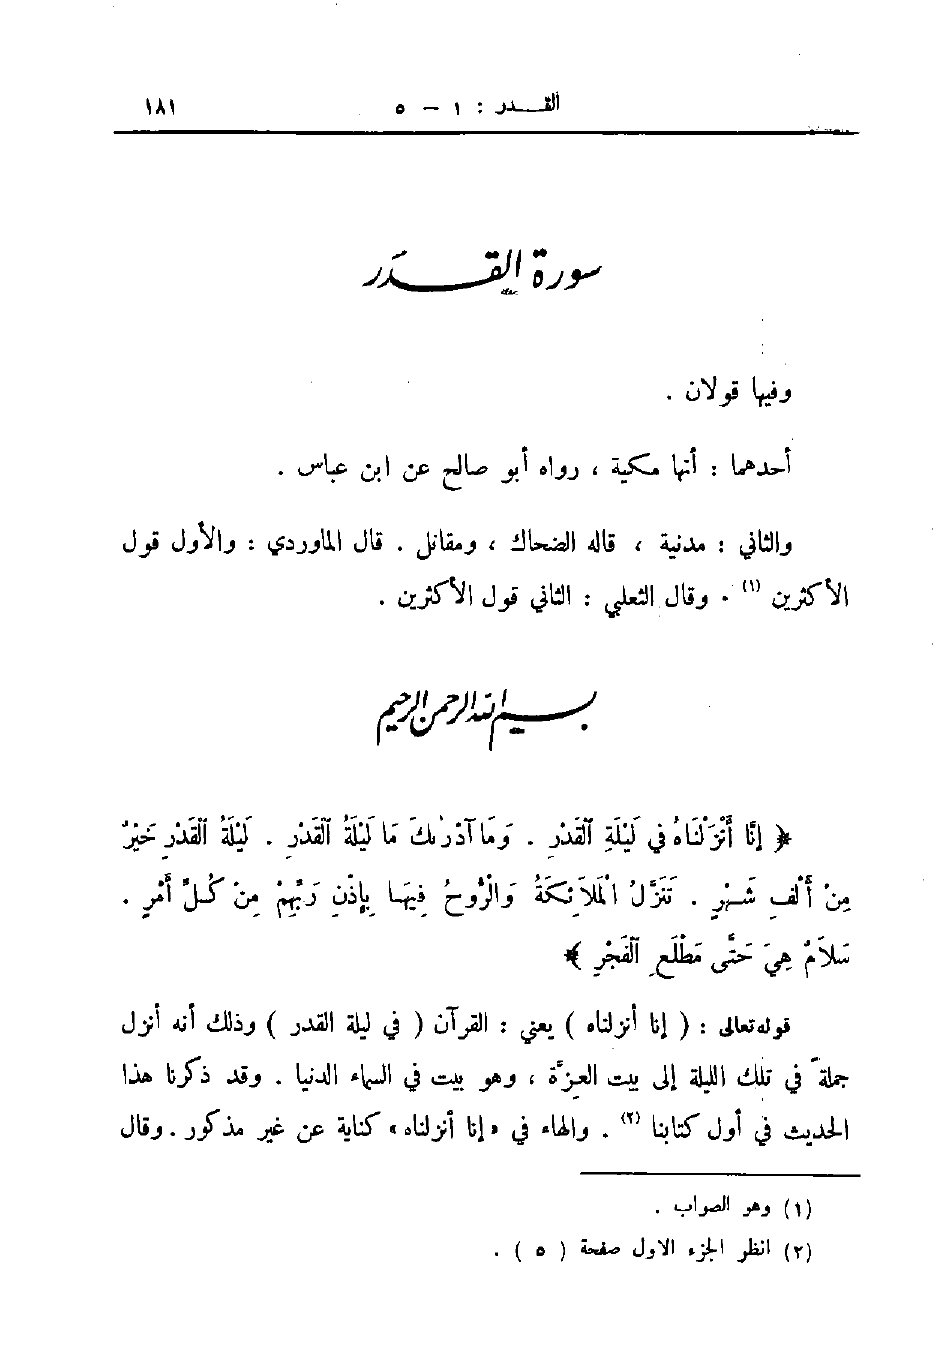 القدر : ١ - ٥ ١٨١
سورة القدر
وفيها قولان .
أحدهما : أنها مكية ، رواه أبو صالح عن ابن عباس .
والثاني : مدنية ، قاله الضحاك ، ومقاتل . قال الماوردي : والأول قول
الأكثرين (١) . وقال الثعلبي : الثاني قول الأكثرين .
بسم الله الرحمن الرحيم
﴿ إِنَّا أَنْزَلْنَاهُ فِي لَيْلَةِ ٱلْقَدْرِ . وَمَا آدْرٰىكَ مَا لَيْلَةُ ٱلْقَدْرِ . لَيْلَةُ ٱلْقَدْرِ خَيْرٌ
مِنْ أَلْفِ شَهْرٍ . تَنَزَّلُ الْمَلَائِكَةُ وَالْرُّوحُ فِيهَا بِإِذْنِ رَبِّهِمْ مِنْ كُلِّ أَمْرٍ .
سَلَامٌ هِيَ حَتَّى مَطْلَعِ ٱلْفَجْرِ ﴾
قوله تعالى : ( إنا أنزلناه ) يعني : القرآن ( في ليلة القدر ) وذلك أنه أنزل
جملةً في تلك الليلة إلى بيت العزَّة ، وهو بيت في السماء الدنيا . وقد ذكرنا هذا
الحديث في أول كتابنا (٢) . والهاء في «إنا أنزلناه» كناية عن غير مذكور . وقال
(١) وهو الصواب .
(٢) انظر الجزء الاول صفحة ( ٥ ) .